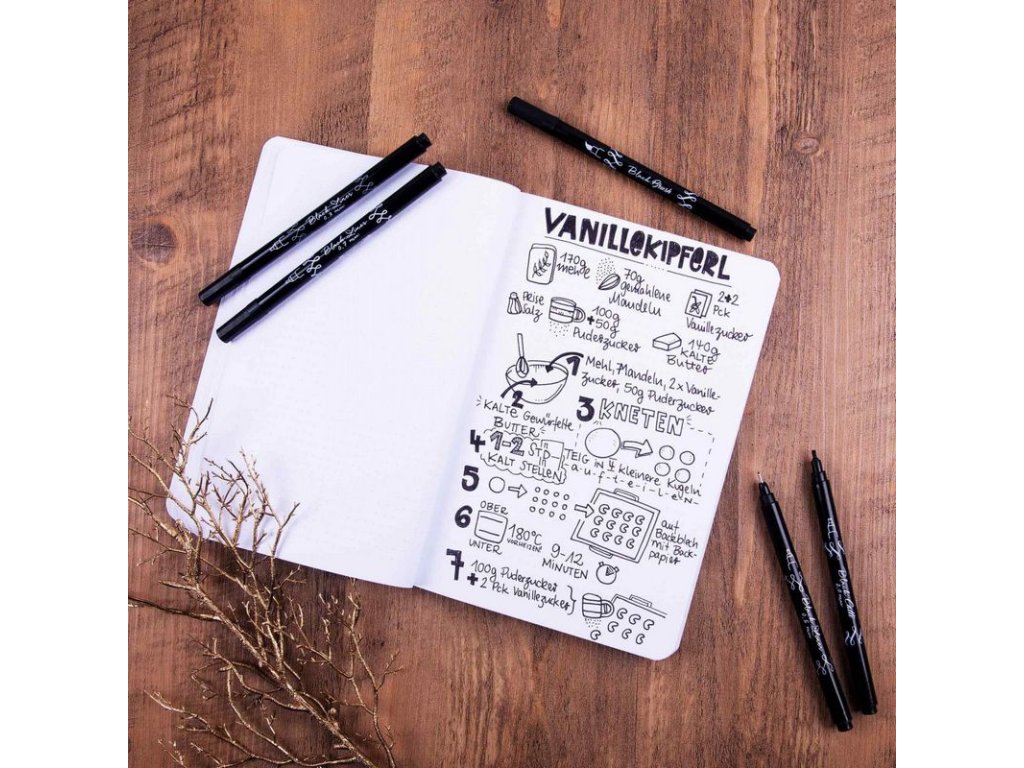 Black Liner
0,3 mm
Black Liner
0,7 mm
Black Brush
VANILLEKIPFERL
170g
mehle
70g
gemahlene
Mandeln
2+2
Pck
Vanillezucker
Prise
Salz
100g
+50g
Puderzucker
140g
KALTE
Butter
1 Mehl, Mandeln, 2 x Vanille-
zucker, 50g Puderzucker
2
KALTE Gewürfelte
BUTTER
3 KNETEN
TEIG IN 4 kleinere Kugeln
a-u-f-t-e-i-l-e-n
4 1-2 STD
KALT STELLEN
5
auf
Backblech
mit Back-
papier
6 OBER
UNTER
180°C
VORHEIZEN!
9-12
MINUTEN
7 100g Puderzucker
+ 2 Pck Vanillezucker